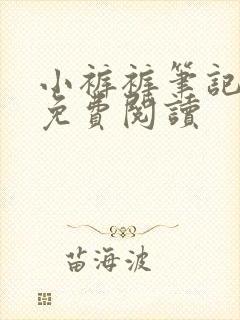 小裤裤筆記
免費閱讀
苗海波